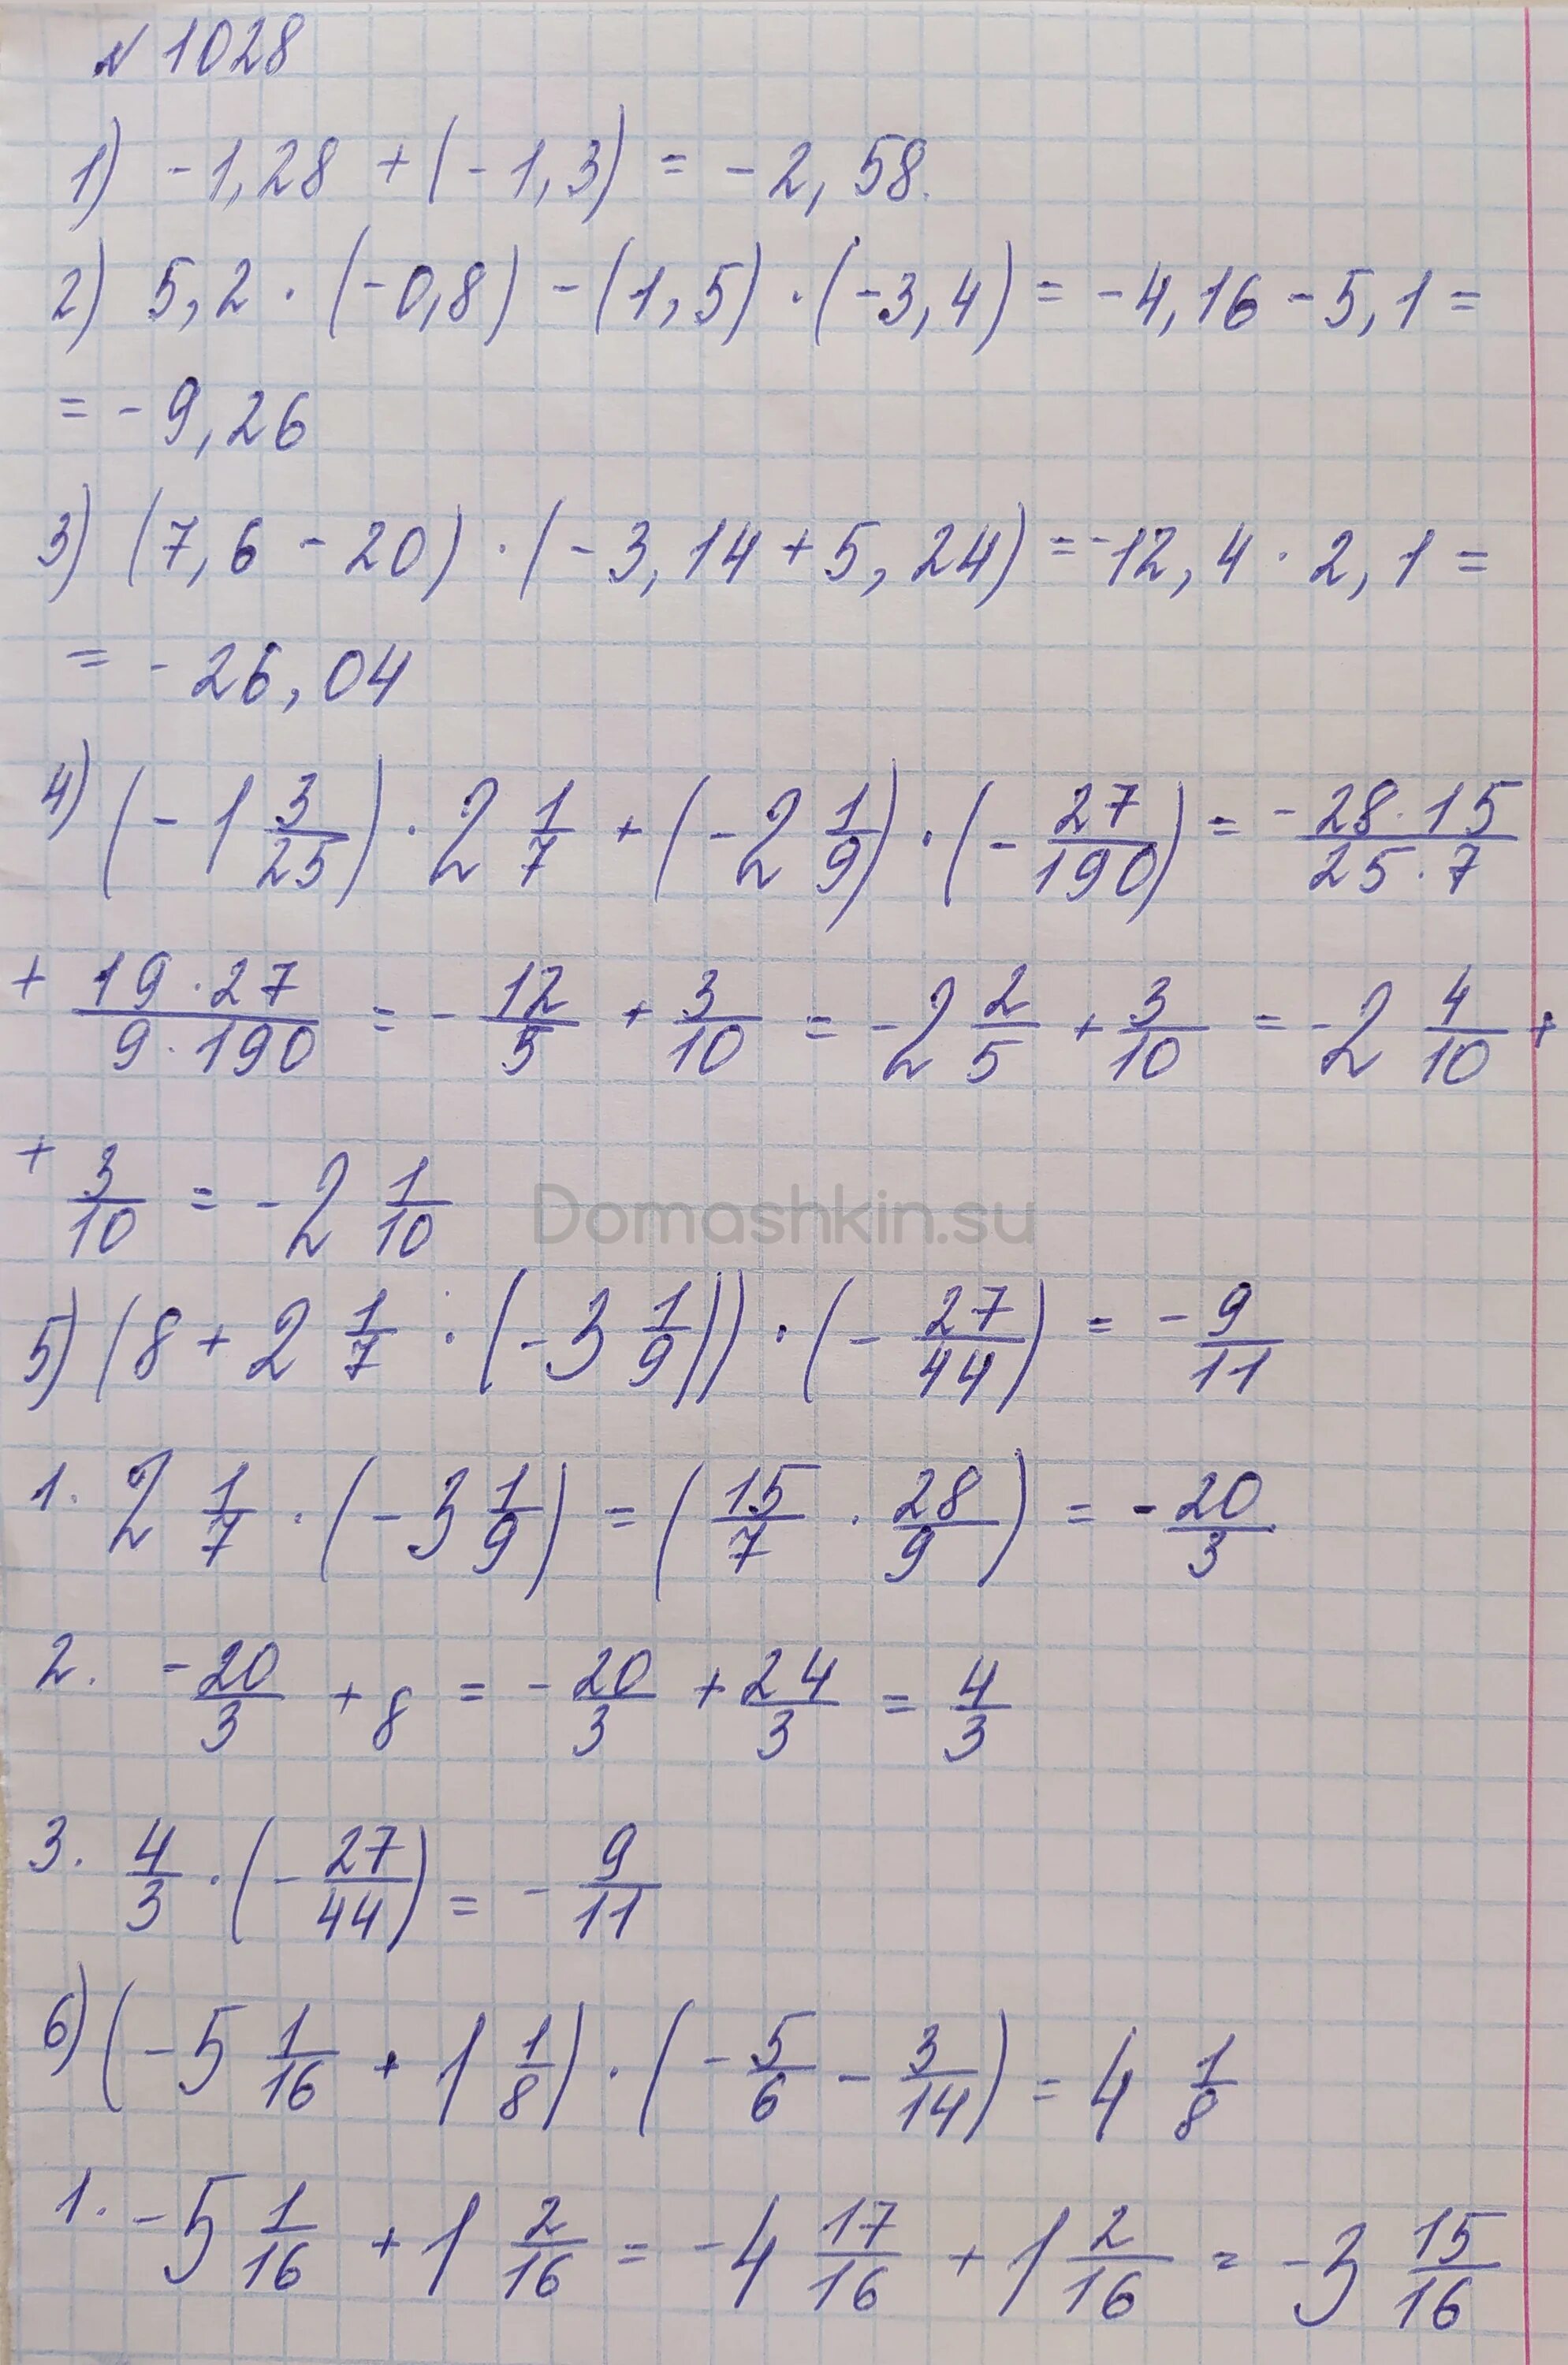 № 1028
1) -1,28 + (-1,3) = -2,58.
2) 5,2 · (-0,8) - (1,5) · (-3,4) = -4,16 - 5,1 =
= -9,26
3) (7,6 - 20) · (-3,14 + 5,24) = -12,4 · 2,1 =
= -26,04
4) (-1 3/25) · 2 1/7 + (-2 1/9) · (-27/190) = -28·15/25·7
+ 19·27/9·190 = -12/5 + 3/10 = -2 2/5 + 3/10 = -2 4/10 +
+ 3/10 = -2 1/10
Domashkin.su
5) (8 + 2 1/7 · (-3 1/9)) · (-27/44) = -9/11
1. 2 1/7 · (-3 1/9) = (15/7 · 28/9) = -20/3
2. -20/3 + 8 = -20/3 + 24/3 = 4/3
3. 4/3 · (-27/44) = -9/11
6) (-5 1/16 + 1 1/8) · (-5/6 - 3/14) = 4 1/8
1. -5 1/16 + 1 2/16 = -4 17/16 + 1 2/16 = -3 15/16